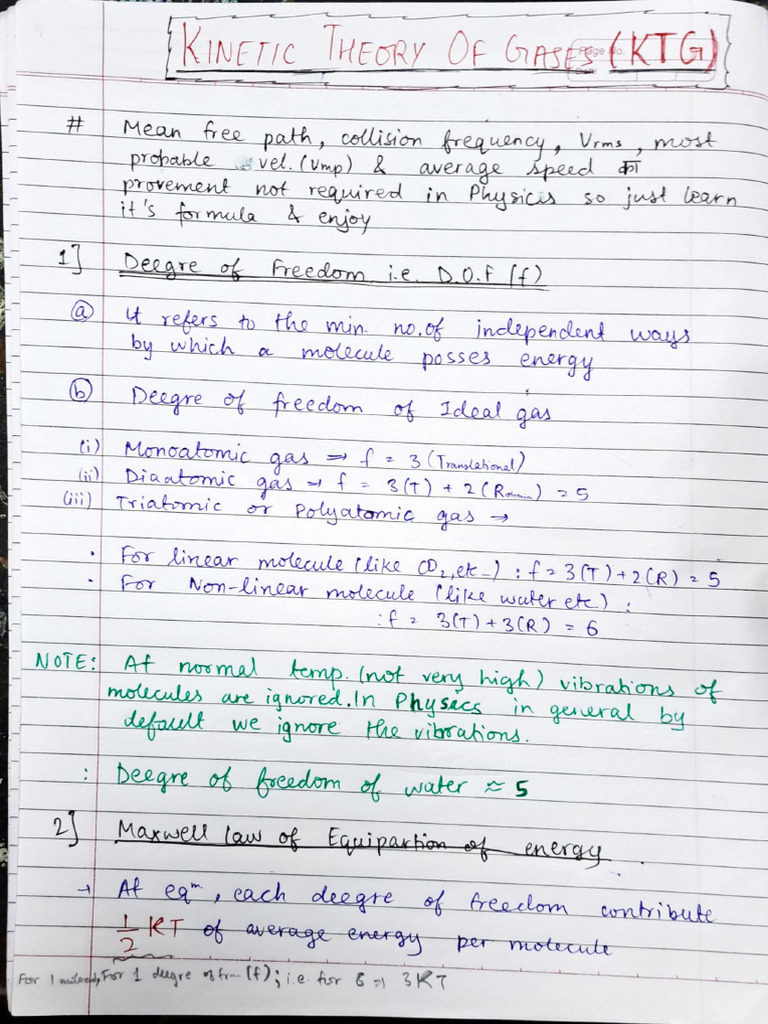 KINETIC THEORY OF GASES (KTG)
Page No.
# Mean free path, collision frequency, Vrms, most
probable vel. (Vmp) & average speed का
provement not required in Physicis so just learn
it's formula & enjoy
1] Deegre of Freedom i.e. D.O.F (f)
(a) It refers to the min. no. of independent ways
by which a molecule posses energy
(b) Deegre of freedom of Ideal gas
(i) Monoatomic gas → f = 3 (Translational)
(ii) Diaatomic gas → f = 3(T) + 2( ) = 5
(iii) Triatomic or Polyatomic gas →
• For linear molecule (like CO2, etc.) : f = 3(T) + 2(R) = 5
• For Non-linear molecule (like water etc.) :
: f = 3(T) + 3(R) = 6
NOTE: At normal temp. (not very high) vibrations of
molecules are ignored. In Physics in general by
default we ignore the vibrations.
: Deegre of freedom of water ≈ 5
2] Maxwell law of Equipartion of energy
→ At eqm, each deegre of freedom contribute
1/2 KT of average energy per molecule
For 1 , For 1 deegre of (f); i.e for 6 ⇒ 3KT